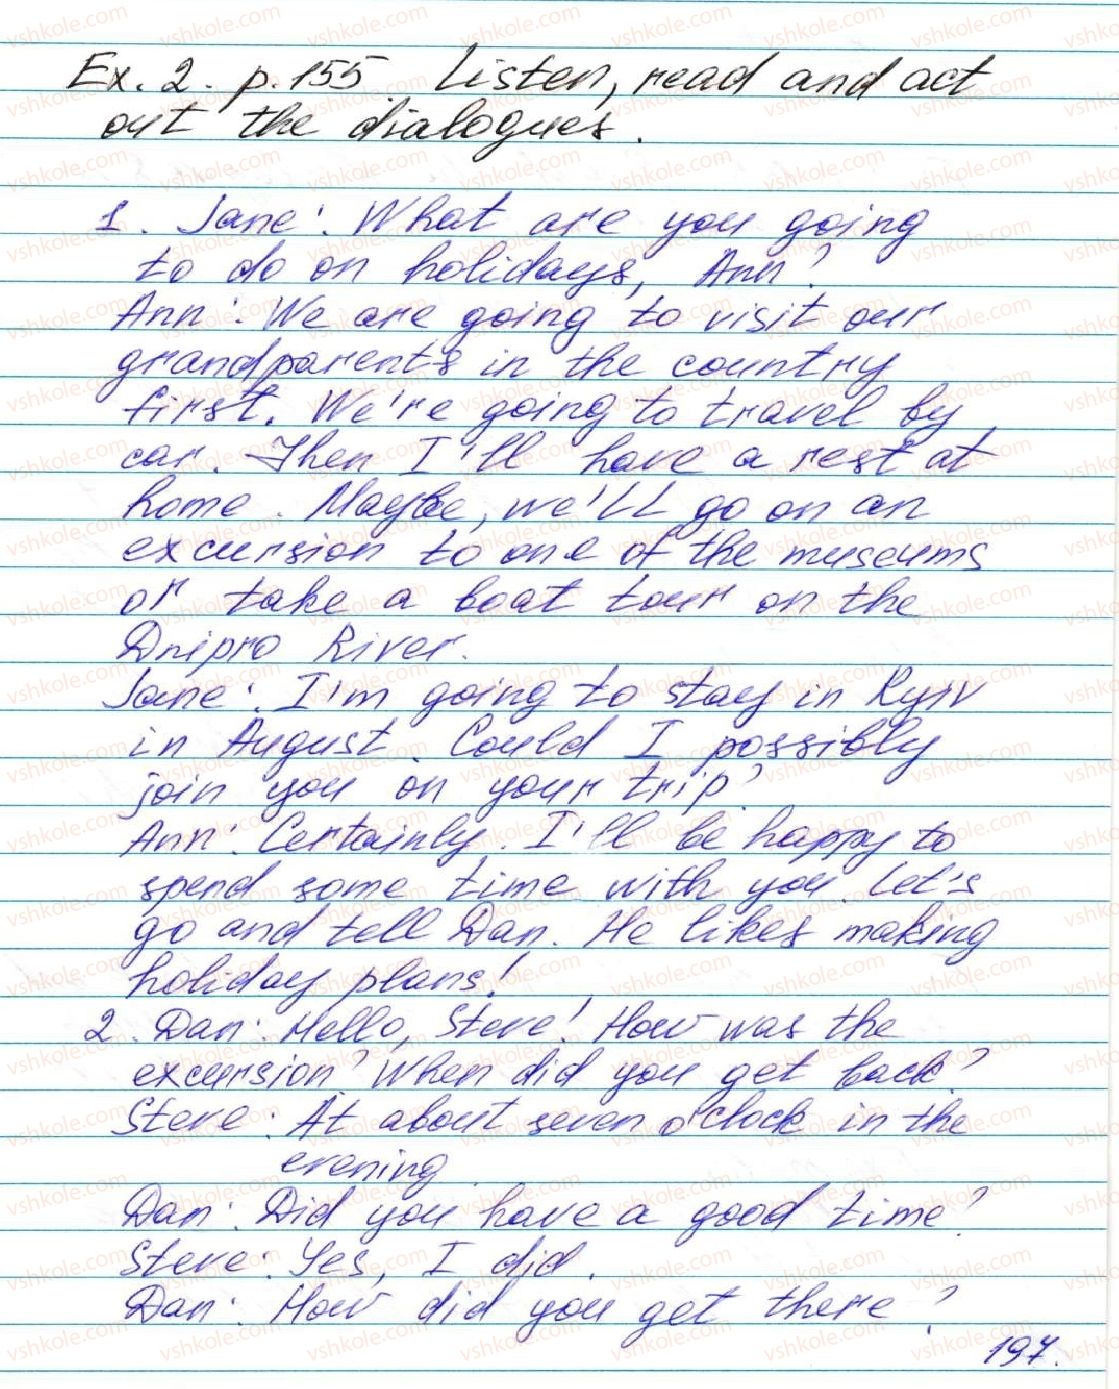 Ex. 2. p. 155. Listen, read and act
out the dialogues.
1. Jane: What are you going
to do on holidays, Ann?
Ann: We are going to visit our
grandparents in the country
first. We're going to travel by
car. Then I'll have a rest at
home. Maybe, we'll go on an
excursion to one of the museums
or take a boat tour on the
Dnipro River.
Jane: I'm going to stay in Kyiv
in August. Could I possibly
join you on your trip?
Ann: Certainly. I'll be happy to
spend some time with you. Let's
go and tell Dan. He likes making
holiday plans!
2. Dan: Hello, Steve! How was the
excursion? When did you get back?
Steve: At about seven o'clock in the
evening.
Dan: Did you have a good time?
Steve: Yes, I did.
Dan: How did you get there?
197.
vshkole.com